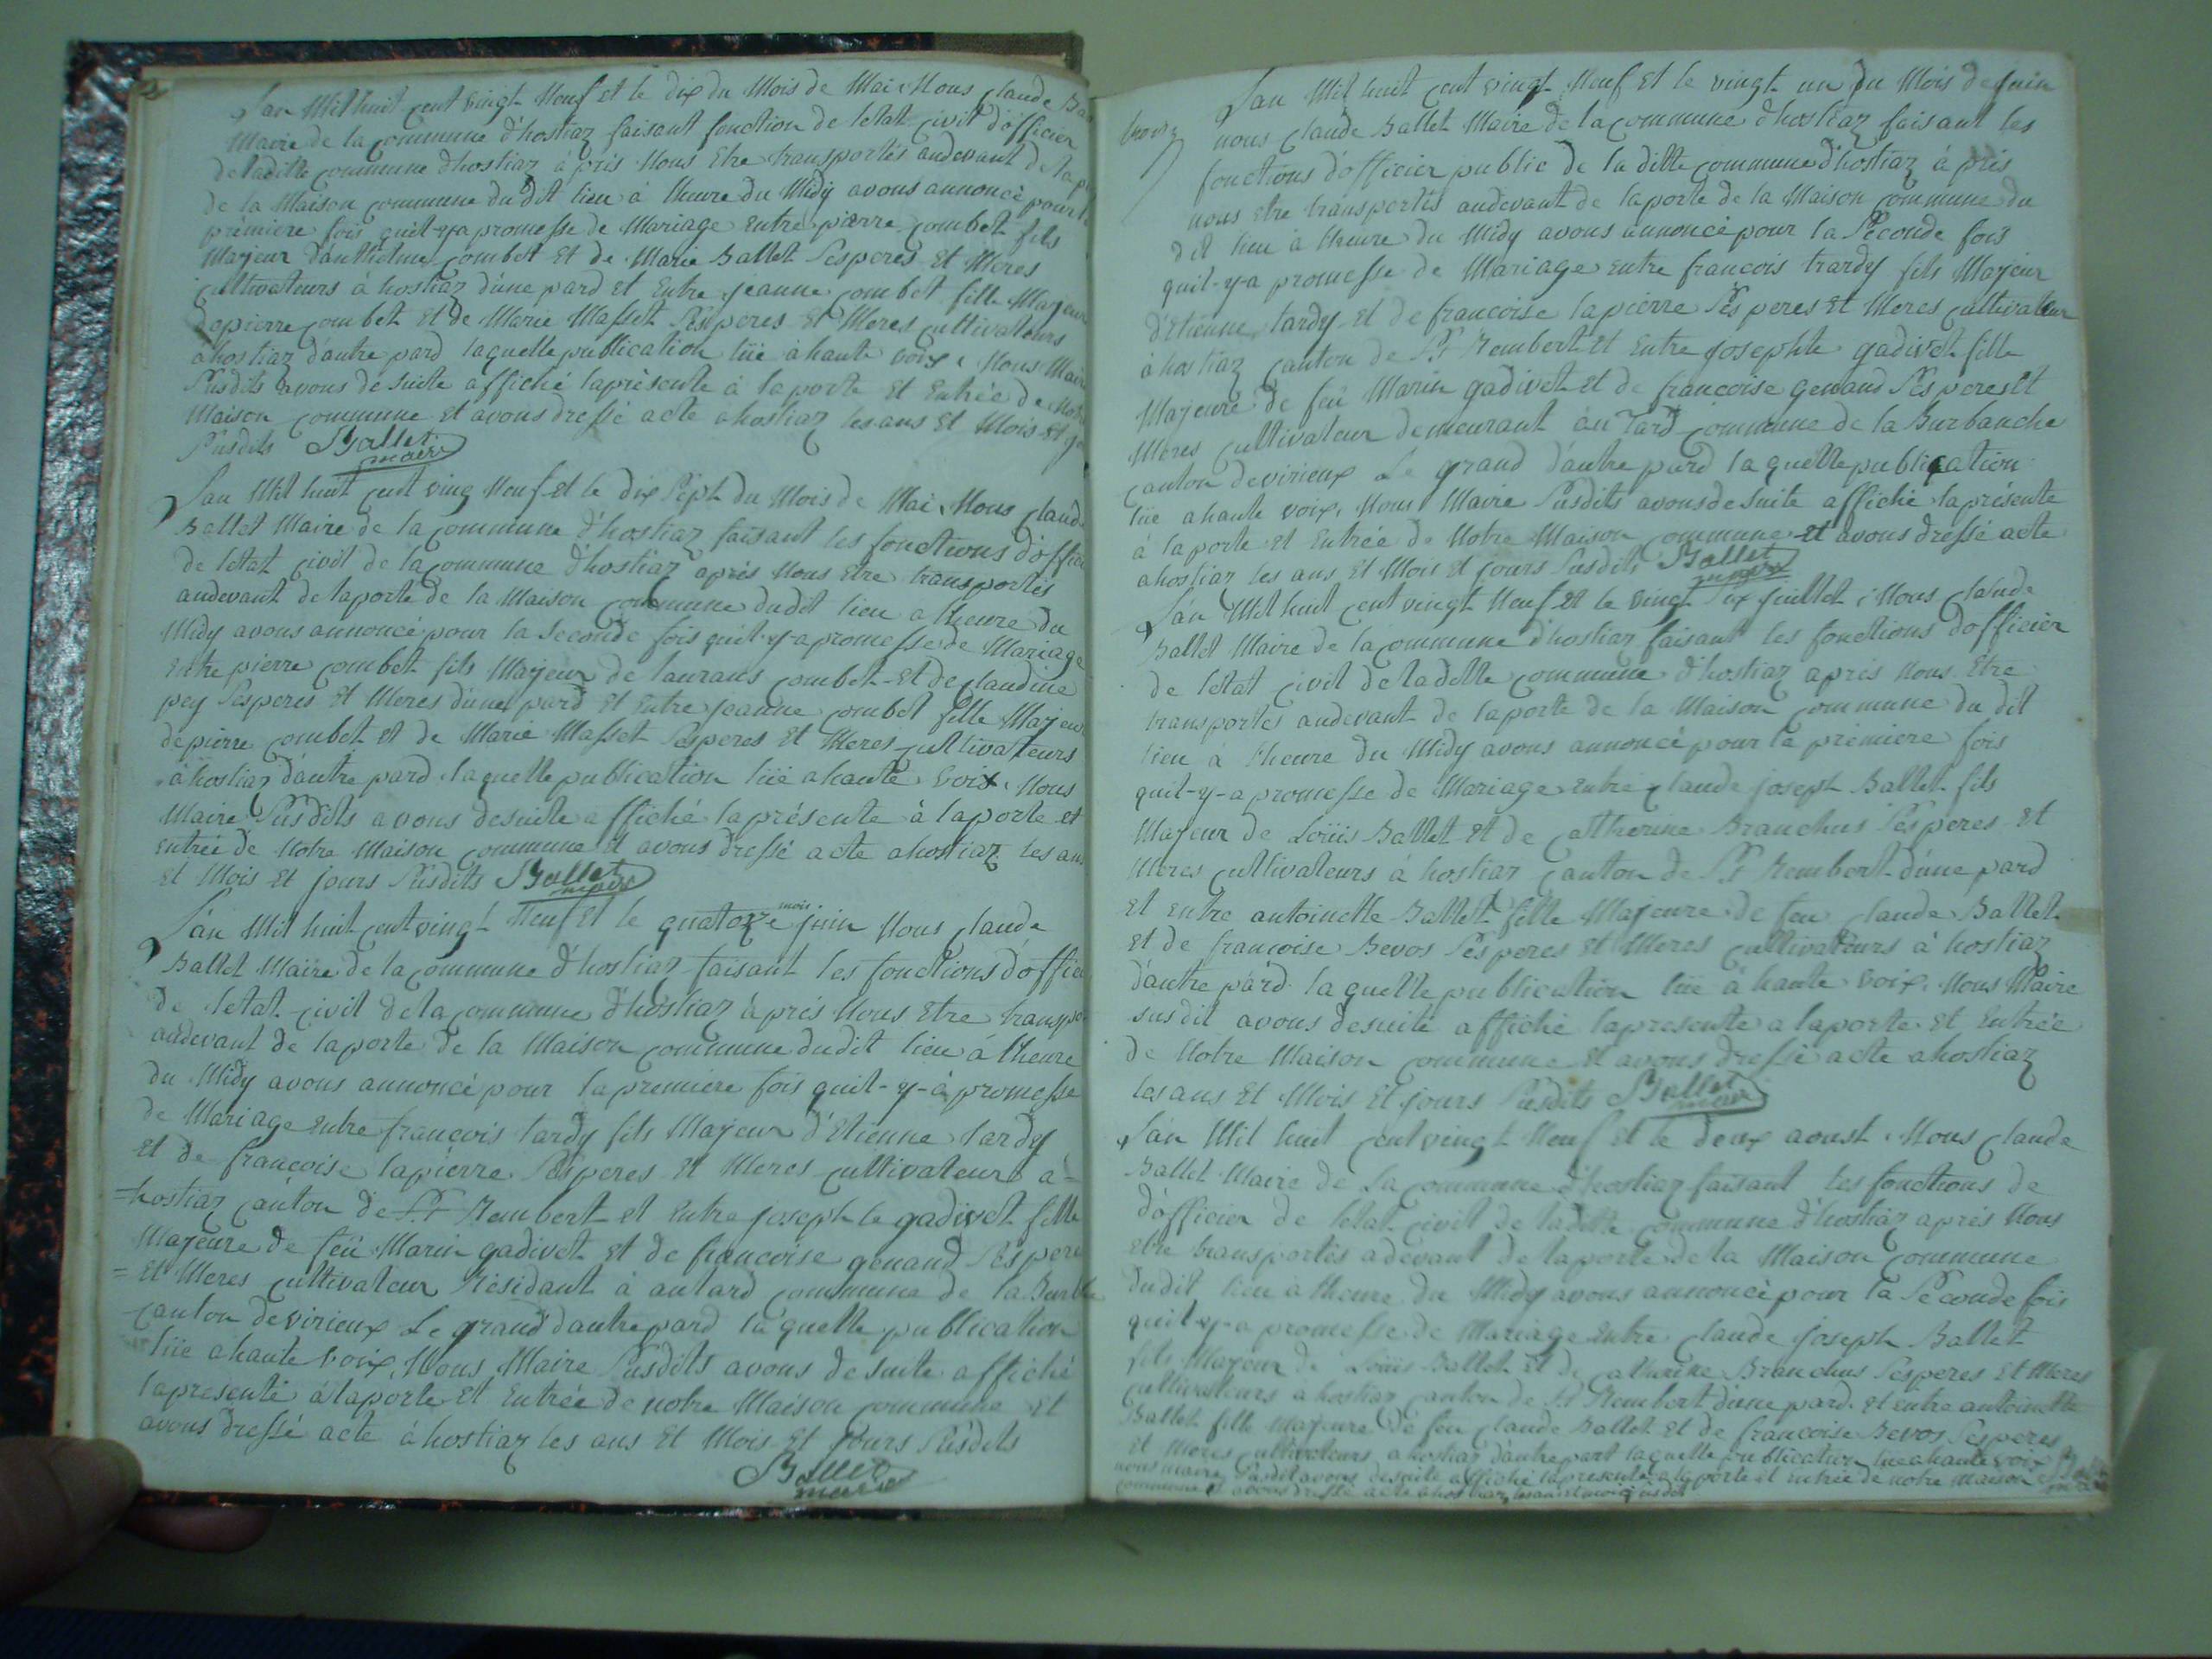 L'an Mil huit cent vingt Neuf et le dix du Mois de Mai Nous Claude
Maire de la commune d'hostiaz faisant fonction de letat civil d'officier
de ladille commune dhostiaz à près Nous Etre transportés audevant de la
de la Maison commune du dit lieu à lheure du Midÿ avons annoncé pour
première fois quil-y-a promesse de Mariage entre pierre combet fils
Majeur danthelme combet et de Marie Ballet Sesperes et Meres
cultivateurs à hostiaz d'une pard et Entre Jeanne combet fille Majeur
de pierre combet et de Marie Masset Sesperes et Meres cultivateurs
à hostiaz d'autre pard laquelle publication lüe à haute voix Nous Maire
Susdits avons desuite affiché laprésente à la porte et Entrée de
Maison commune et avons dressé acte a hostiaz les ans et Mois et
Susdits Ballet
maire
L'an Mil huit cent ving Neuf et le dix Sept du Mois de Mai Nous
Ballet Maire de la commune d'hostiaz faisant les fonctions
de letat civil de la commune d'hostiaz après Nous Etre transportés
audevant de laporte de la Maison commune dudit lieu a lheure du
Midy avons annoncé pour la seconde fois quil-y-a promesse de Mariage
Entre pierre combet fils Majeur de laurans combet et de claudine
pey Sesperes et Meres d'une pard et Entre jeanne combet fille
de pierre combet et de Marie Masset Sesperes et Meres cultivateurs
à hostiaz d'autre pard laquelle publication lüe a haute voix Nous
Maire Susdits avons desuite affiché laprésente à laporte et
entrée de Notre Maison commune et avons dressé acte ahostiaz les
et Mois et jours Susdits Ballet
maire
L'an Mil huit cent vingt Neuf et le quatorze mois juin Nous claude
Ballet Maire de la commune d'hostiaz faisant les fonctions
de letat civil de la commune d'hostiaz après Nous Etre
audevant de laporte de la Maison commune dudit lieu à lheure
du Midy avons annoncé pour la premiere fois quil-y-à promesse
de Mariage Entre francois tardy fils Majeur d'Etienne tardy
et de francoise lapierre Sesperes et Meres cultivateurs a=
=hostiaz canton de St Rembert et Entre josephte gadivet fille
Majeure de feu Marin gadivet et de francoise genand
= et Meres cultivateur Résidant à autard commune de la
canton devirieux Le grand dautre pard laquelle publication
lüe ahaute voix, Nous Maire Susdits avons de suite affiché
lapresente à laporte et Entrée de notre Maison commune et
avons dressé acte à hostiaz les ans et Mois et jours Susdits
Ballet
maire
L'an Mil huit cent vingt Neuf et le vingt un du Mois de juin
nous claude Ballet Maire de la commune d'hostiaz faisant les
fonctions d'officier public de la ditte commune d'hostiaz à près
nous etre transportés audevant de laporte de la Maison commune du
dit lieu à lheure du Midy avons annoncé pour la Seconde fois
quil-y-a promesse de Mariage entre francois tardy fils Majeur
d'Etienne tardy et de francoise lapierre Ses peres et Meres cultivateur
à hostiaz canton de St Rembert et Entre josephte gadivet fille
Majeure de feu Marin gadivet et de francoise genand Ses peres et
Meres cultivateur demeurant au tard commune de la Burbanche
canton devirieux Le grand d'autre pard laquelle publication
lüe ahaute voix, Nous Maire Susdits avons de suite affiché laprésente
à laporte et Entrée de Notre Maison commune et avons dressé acte
ahostiaz les ans et Mois et jours Susdits Ballet
maire
L'an Mil huit cent vingt Neuf et le vingt Six juillet Nous claude
Ballet Maire de la commune d'hostiaz faisant les fonctions d'officier
de letat civil de ladelle commune d'hostiaz après Nous Etre
transportés audevant de laporte de la Maison commune du dit
lieu à lheure du Midy avons annoncé pour la premiere fois
quil-y-a promesse de Mariage entre claude joseph Ballet fils
Majeur de Loüis Ballet et de catherine Branchus Sesperes et
Meres cultivateurs à hostiaz canton de St Rembert d'une pard
et entre antoinette Ballet fille Majeure de feu claude Ballet
et de francoise Bevos Sesperes et Meres cultivateurs à hostiaz
d'autre pard laquelle publication lüe à haute voix. Nous Maire
susdit avons desuite affiché lapresente a laporte et Entrée
de Notre Maison commune et avons dressé acte ahostiaz
les ans et Mois et jours Susdits Ballet
maire
L'an Mil huit cent vingt Neuf et le deux aoust Nous claude
Ballet Maire de La commune d'hostiaz faisant les fonctions de
d'officier de letat civil de ladelle commune d'hostiaz après Nous
etre transportés adevant de laporte de la Maison commune
dudit lieu a lheure du Midy avons annoncé pour la Seconde fois
quil-y-a promesse de Mariage Entre claude joseph Ballet
fils Majeur de Loüis Ballet et de catherine Branchus Sesperes et Meres
cultivateurs à hostiaz canton de St Rembert d'une pard. et Entre antoinette
Ballet fille Majeure de feu claude Ballet et de francoise Bevos Sesperes
et Meres cultivateurs a hostiaz dautre part laquelle publication lüe ahaute voix
nous maire Susdit avons desuite affiché lapresente a laporte et Entrée de notre Maison
commune et avons dressé acte ahostiaz les ans et mois susdits